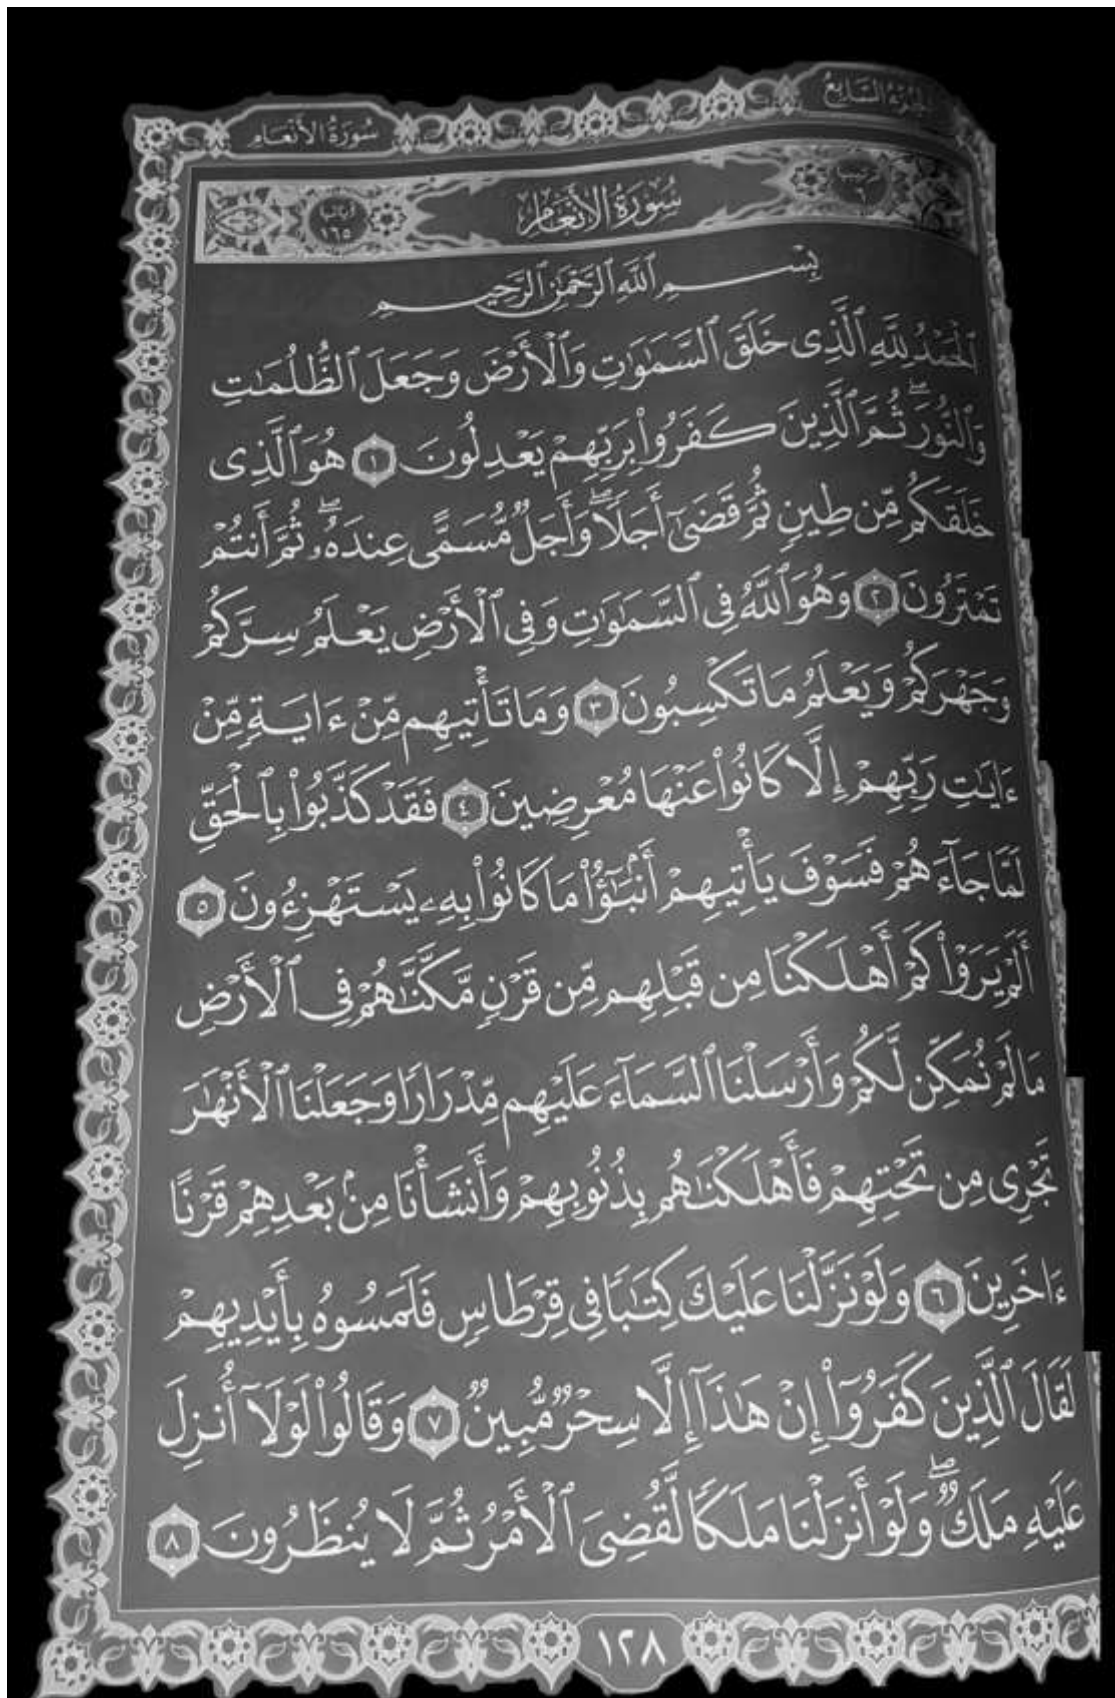 الجزء السابع
سُورَةُ الأَنْعَام
ترتيبها
٦
سُورَةُ الأَنْعَامِ
آياتها
١٦٥
بِسْمِ ٱللَّهِ ٱلرَّحْمَٰنِ ٱلرَّحِيمِ
ٱلْحَمْدُ لِلَّهِ ٱلَّذِى خَلَقَ ٱلسَّمَٰوَٰتِ وَٱلْأَرْضَ وَجَعَلَ ٱلظُّلُمَٰتِ
وَٱلنُّورَ ۖ ثُمَّ ٱلَّذِينَ كَفَرُوا۟ بِرَبِّهِمْ يَعْدِلُونَ ١ هُوَ ٱلَّذِى
خَلَقَكُم مِّن طِينٍ ثُمَّ قَضَىٰٓ أَجَلًا ۖ وَأَجَلٌ مُّسَمًّى عِندَهُۥ ۖ ثُمَّ أَنتُمْ
تَمْتَرُونَ ٢ وَهُوَ ٱللَّهُ فِى ٱلسَّمَٰوَٰتِ وَفِى ٱلْأَرْضِ يَعْلَمُ سِرَّكُمْ
وَجَهْرَكُمْ وَيَعْلَمُ مَا تَكْسِبُونَ ٣ وَمَا تَأْتِيهِم مِّنْ ءَايَةٍ مِّنْ
ءَايَٰتِ رَبِّهِمْ إِلَّا كَانُوا۟ عَنْهَا مُعْرِضِينَ ٤ فَقَدْ كَذَّبُوا۟ بِٱلْحَقِّ
لَمَّا جَآءَهُمْ فَسَوْفَ يَأْتِيهِمْ أَنۢبَٰٓؤُا۟ مَا كَانُوا۟ بِهِۦ يَسْتَهْزِءُونَ ٥
أَلَمْ يَرَوْا۟ كَمْ أَهْلَكْنَا مِن قَبْلِهِم مِّن قَرْنٍ مَّكَّنَّٰهُمْ فِى ٱلْأَرْضِ
مَا لَمْ نُمَكِّن لَّكُمْ وَأَرْسَلْنَا ٱلسَّمَآءَ عَلَيْهِم مِّدْرَارًا وَجَعَلْنَا ٱلْأَنْهَٰرَ
تَجْرِى مِن تَحْتِهِمْ فَأَهْلَكْنَٰهُم بِذُنُوبِهِمْ وَأَنشَأْنَا مِنۢ بَعْدِهِمْ قَرْنًا
ءَاخَرِينَ ٦ وَلَوْ نَزَّلْنَا عَلَيْكَ كِتَٰبًا فِى قِرْطَاسٍ فَلَمَسُوهُ بِأَيْدِيهِمْ
لَقَالَ ٱلَّذِينَ كَفَرُوٓا۟ إِنْ هَٰذَآ إِلَّا سِحْرٌ مُّبِينٌ ٧ وَقَالُوا۟ لَوْلَآ أُنزِلَ
عَلَيْهِ مَلَكٌ ۖ وَلَوْ أَنزَلْنَا مَلَكًا لَّقُضِىَ ٱلْأَمْرُ ثُمَّ لَا يُنظَرُونَ ٨
١٢٨